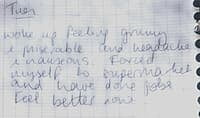 Tues
woke up feeling grumy
& miserable and headache
& nauseous. Forced
myself to supermarket
and have done jobs
feel better now